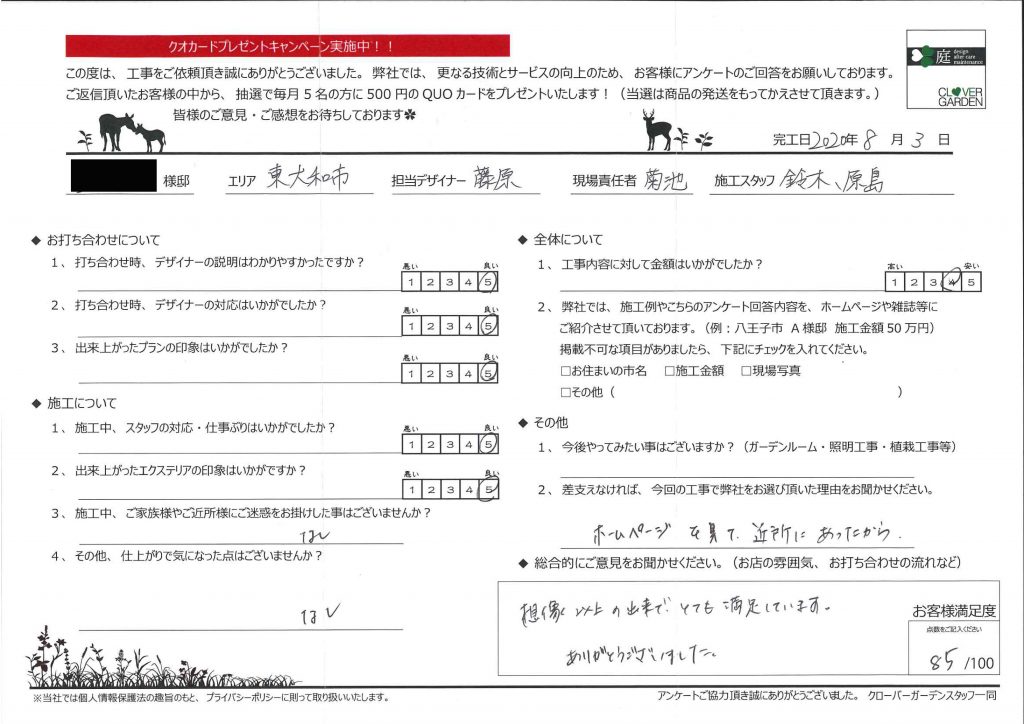 クオカードプレゼントキャンペーン実施中！！
この度は、工事をご依頼頂き誠にありがとうございました。弊社では、更なる技術とサービスの向上のため、お客様にアンケートのご回答をお願いしております。
ご返信頂いたお客様の中から、抽選で毎月５名の方に500円のQUOカードをプレゼントいたします！（当選は商品の発送をもってかえさせて頂きます。）
皆様のご意見・ご感想をお待ちしております✿
庭 design after care maintenance
CLOVER GARDEN
完工日2020年8月3日
様邸 エリア 東大和市 担当デザイナー 藤原 現場責任者 菊池 施工スタッフ 鈴木、原島
◆ お打ち合わせについて
１、打ち合わせ時、デザイナーの説明はわかりやすかったですか？
悪い 良い
1 2 3 4 5
２、打ち合わせ時、デザイナーの対応はいかがでしたか？
悪い 良い
1 2 3 4 5
３、出来上がったプランの印象はいかがでしたか？
悪い 良い
1 2 3 4 5
◆ 施工について
１、施工中、スタッフの対応・仕事ぶりはいかがでしたか？
悪い 良い
1 2 3 4 5
２、出来上がったエクステリアの印象はいかがですか？
悪い 良い
1 2 3 4 5
３、施工中、ご家族様やご近所様にご迷惑をお掛けした事はございませんか？
なし
４、その他、仕上がりで気になった点はございませんか？
なし
◆ 全体について
１、工事内容に対して金額はいかがでしたか？
高い 安い
1 2 3 4 5
２、弊社では、施工例やこちらのアンケート回答内容を、ホームページや雑誌等に
ご紹介させて頂いております。（例：八王子市 A様邸 施工金額50万円）
掲載不可な項目がありましたら、下記にチェックを入れてください。
□お住まいの市名 □施工金額 □現場写真
□その他（ ）
◆ その他
１、今後やってみたい事はございますか？（ガーデンルーム・照明工事・植栽工事等）
２、差支えなければ、今回の工事で弊社をお選び頂いた理由をお聞かせください。
ホームページを見て、近所にあったから。
◆ 総合的にご意見をお聞かせください。（お店の雰囲気、お打ち合わせの流れなど）
想像以上の出来で、とても満足しています。
ありがとうございました。
お客様満足度
点数をご記入ください
85/100
※当社では個人情報保護法の趣旨のもと、プライバシーポリシーに則って取り扱いいたします。
アンケートご協力頂き誠にありがとうございました。クローバーガーデンスタッフ一同